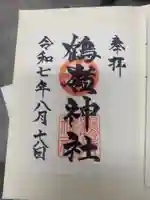 奉拝
鶴嶺神社
令和七年八月十六日